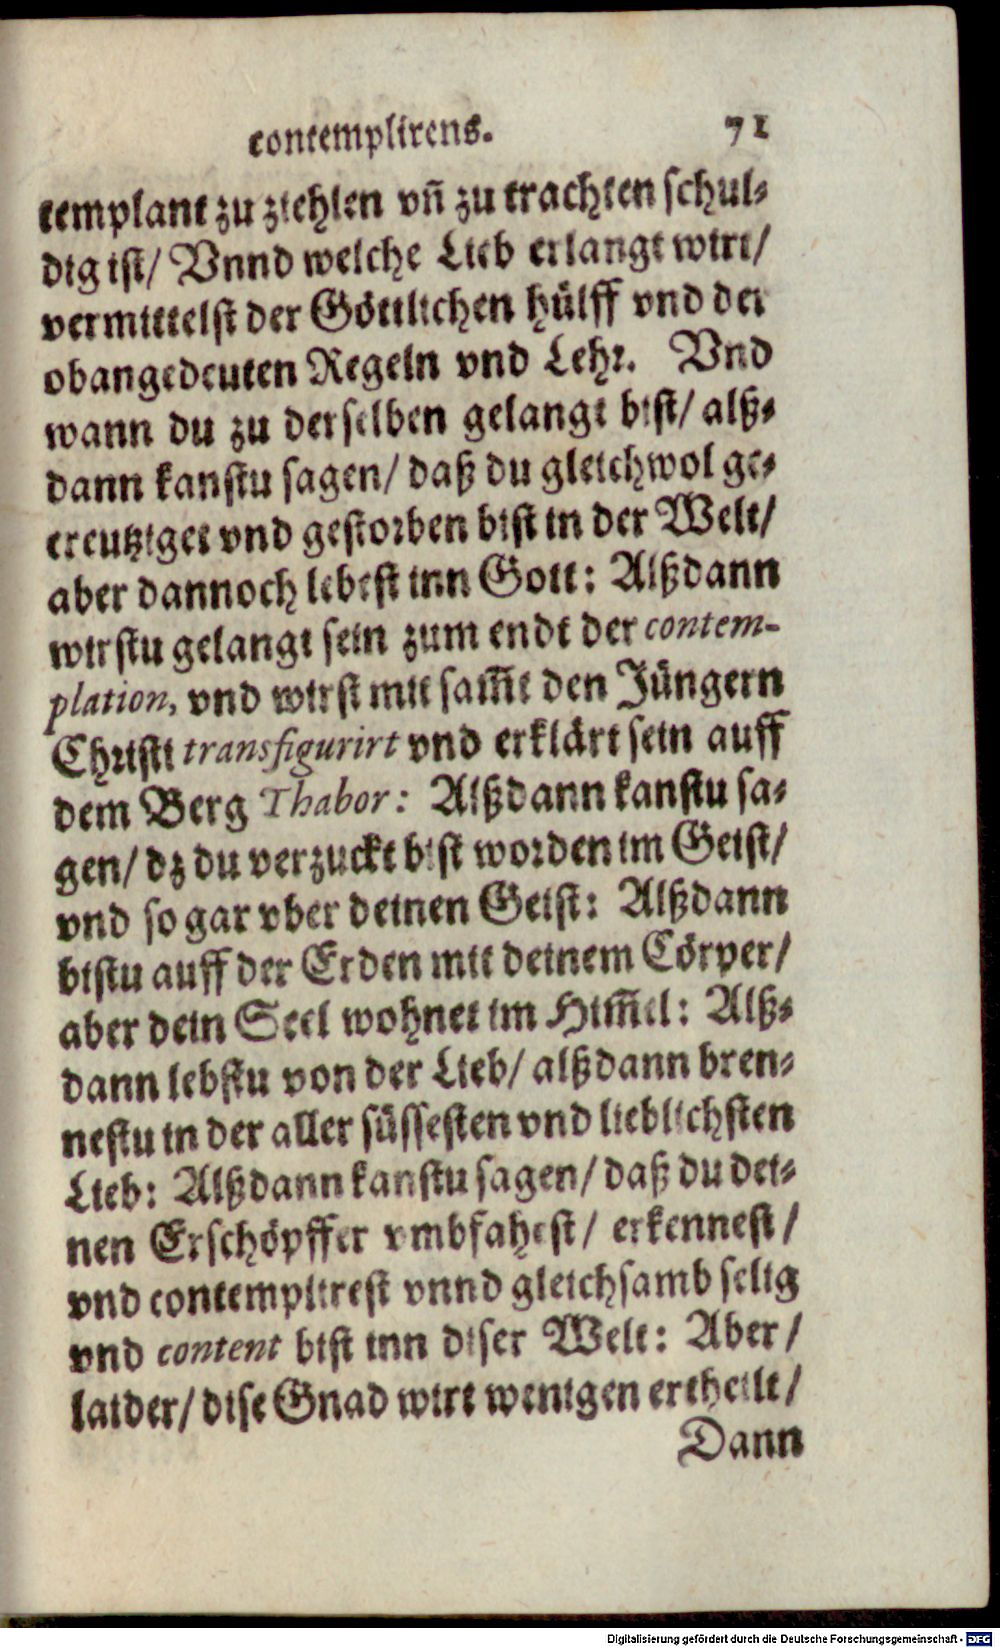 contemplirens. 71
templant zu ziehlen vñ zu trachten schul-
dig ist/ Vnnd welche Lieb erlangt wirt/
vermittelst der Göttlichen hülff vnd der
obangedeuten Regeln vnd Lehr. Vnd
wann du zu derselben gelangt bist/ alß-
dann kanstu sagen/ daß du gleichwol ge-
creutziget vnd gestorben bist in der Welt/
aber dannoch lebest inn Gott: Alßdann
wirstu gelangt sein zum endt der contem-
plation, vnd wirst mit sam̃t den Jüngern
Christi transfigurirt vnd erklärt sein auff
dem Berg Thabor: Alßdann kanstu sa-
gen/ dz du verzuckt bist worden im Geist/
vnd so gar vber deinen Geist: Alßdann
bistu auff der Erden mit deinem Cörper/
aber dein Seel wohnet im Him̃el: Alß-
dann lebstu von der Lieb/ alßdann bren-
nestu in der aller süssesten vnd lieblichsten
Lieb: Alßdann kanstu sagen/ daß du dei-
nen Erschöpffer vmbfahest/ erkennest/
vnd contemplirest vnnd gleichsamb selig
vnd content bist inn diser Welt: Aber/
laider/ dise Gnad wirt wenigen ertheilt/
Dann
Digitalisierung gefördert durch die Deutsche Forschungsgemeinschaft - DFG